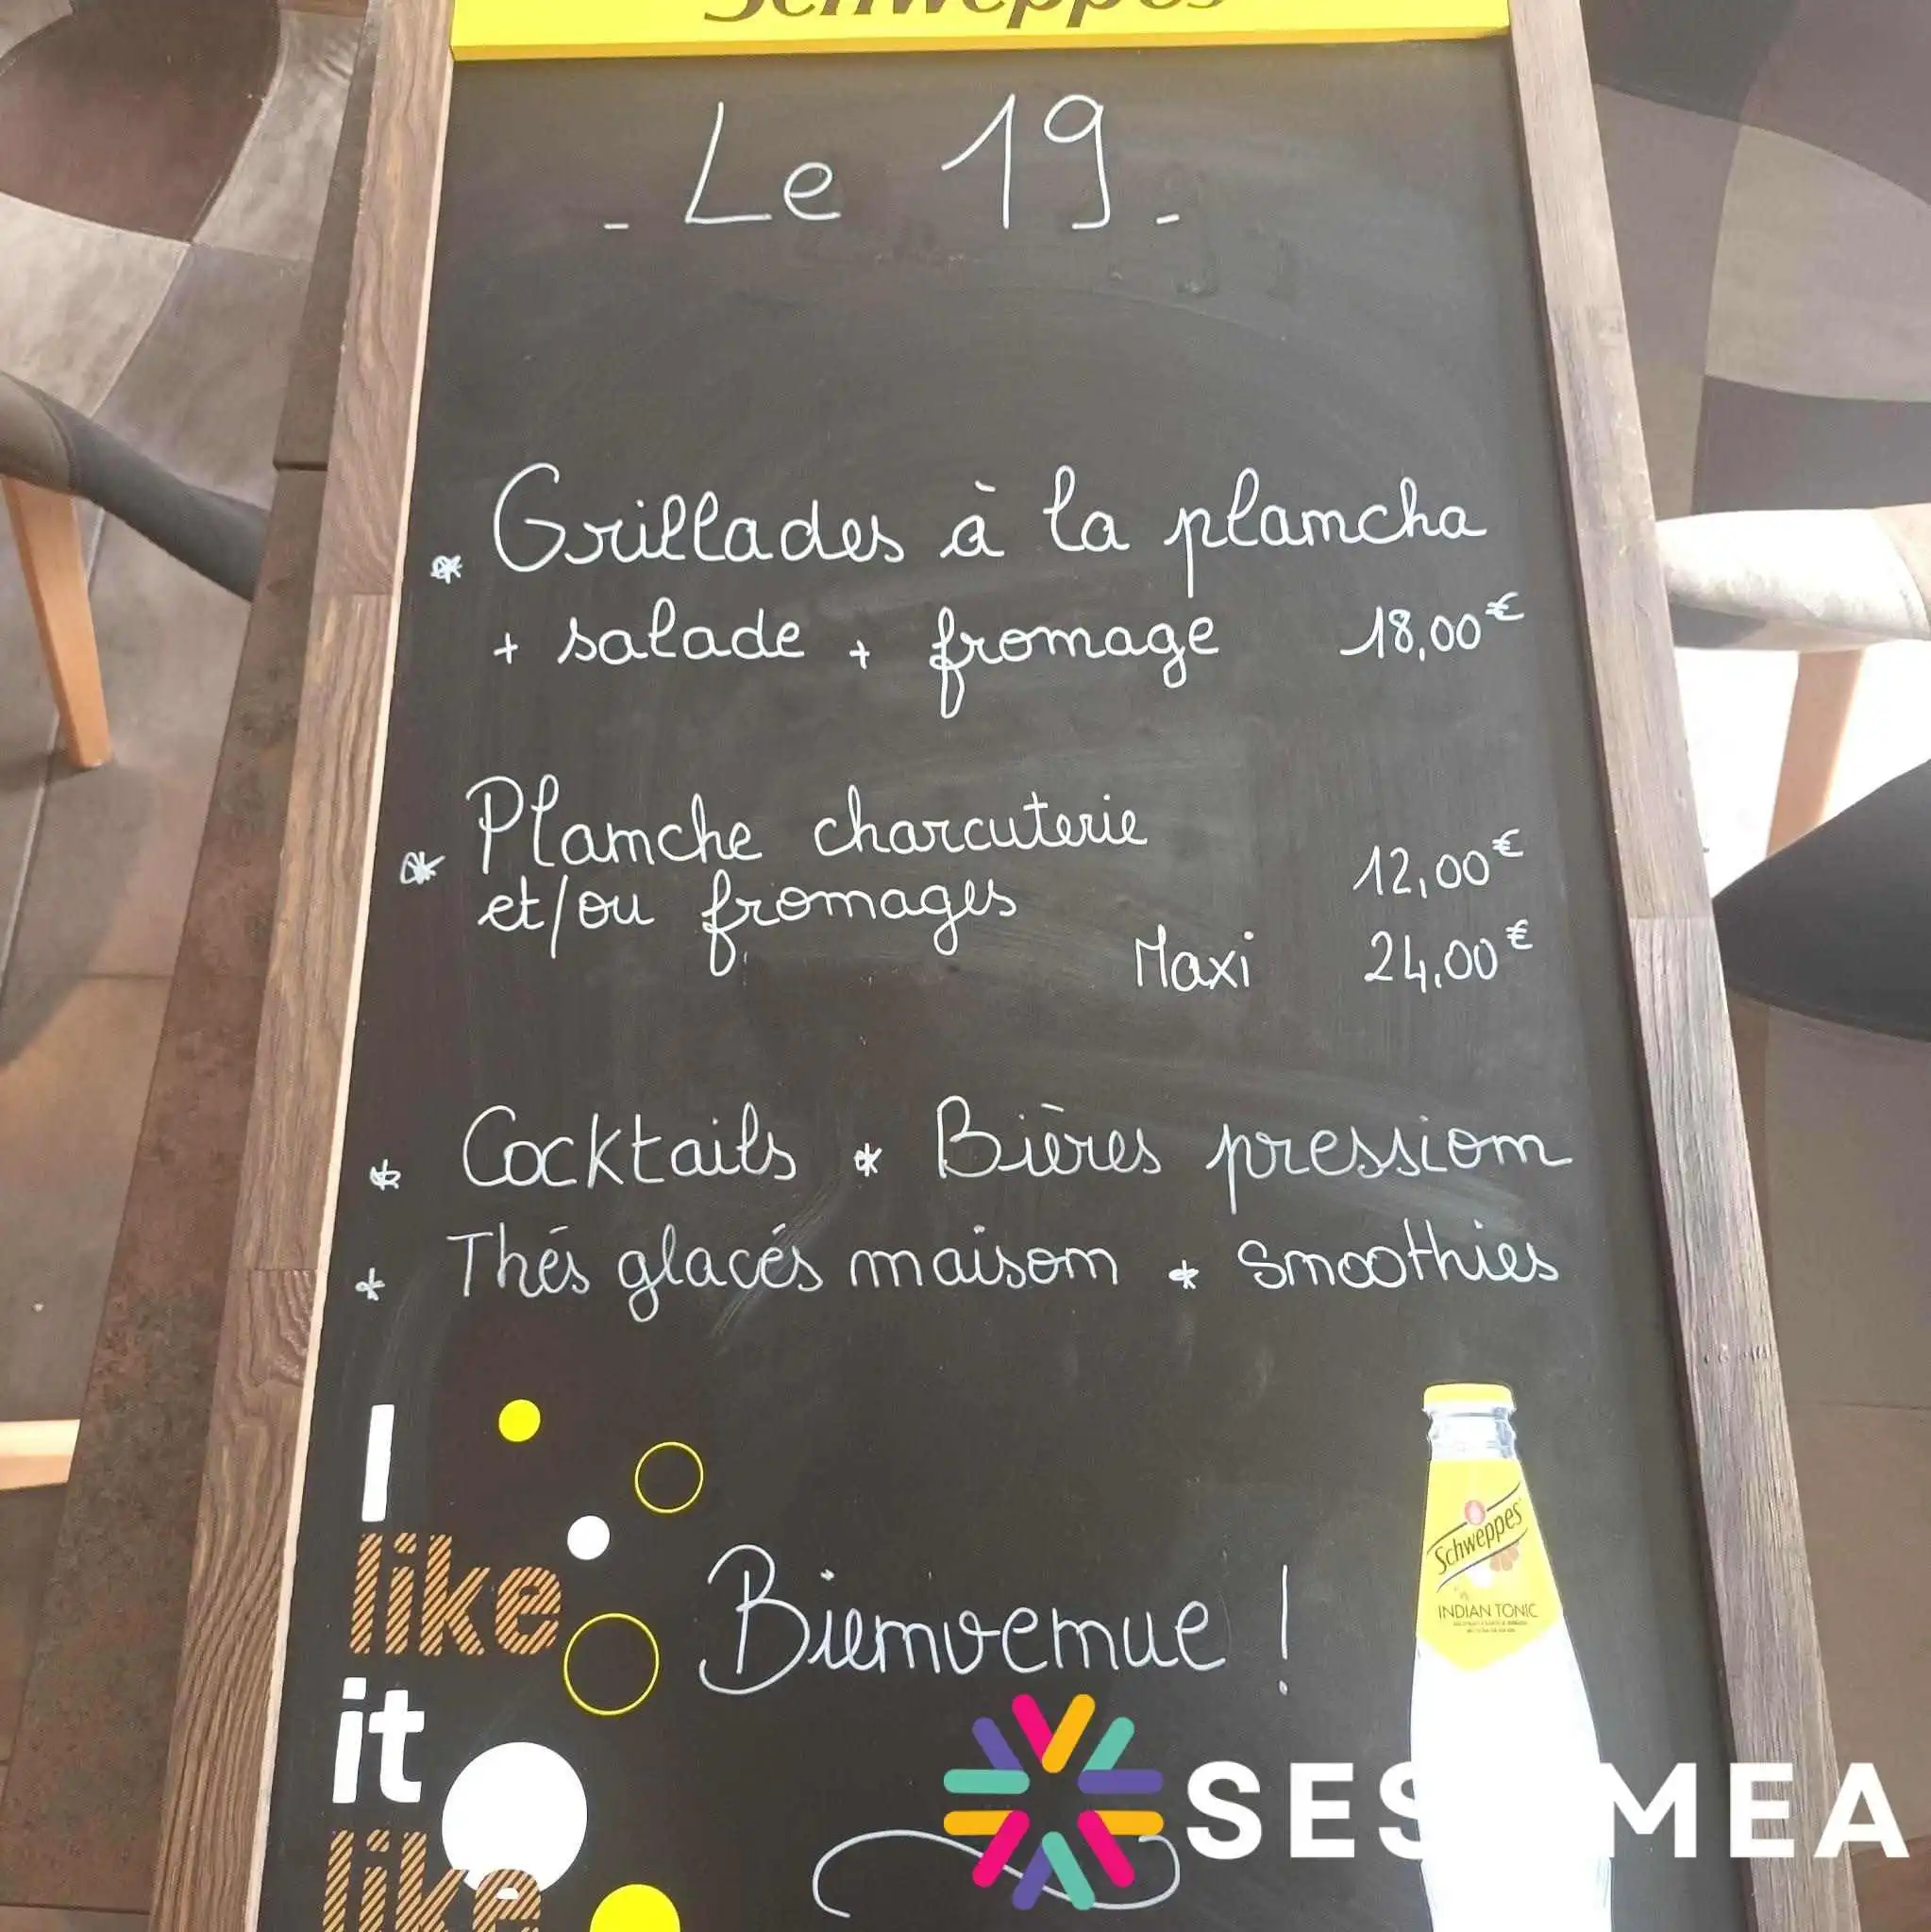 Schweppes
- Le 19 -
* Grillades à la plancha
+ salade + fromage 18,00€
* Planche charcuterie 12,00€
et/ou fromages
Maxi 24,00€
* Cocktails * Bières pression
* Thés glacés maison * Smoothies
I
like
it
like
Bienvenue !
Schweppes
INDIAN TONIC